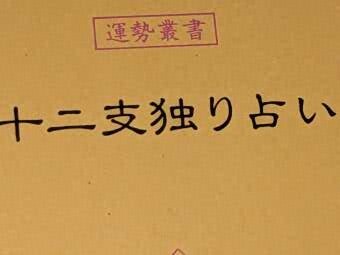 運勢叢書
十二支独り占い